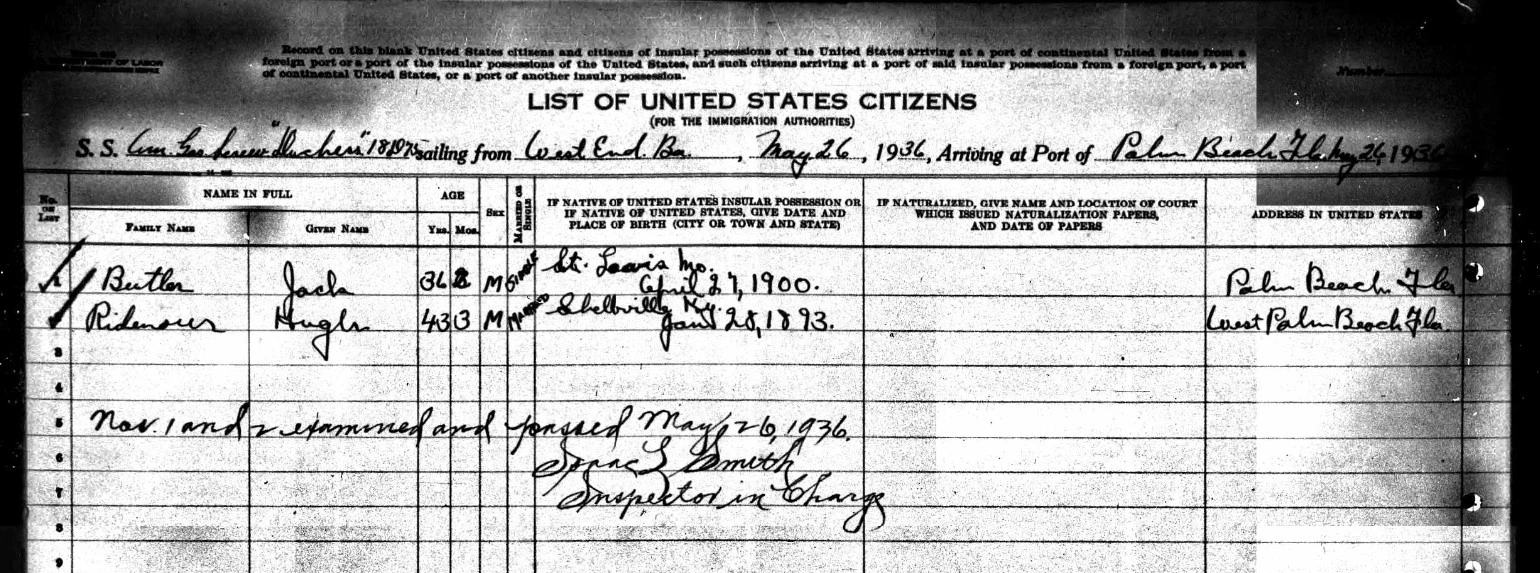 DEPARTMENT OF LABOR
Record on this blank United States citizens and citizens of insular possessions of the United States arriving at a port of continental United States from a
foreign port or a port of the insular possessions of the United States, and such citizens arriving at a port of said insular possessions from a foreign port, a port
of continental United States, or a port of another insular possession.
Number
LIST OF UNITED STATES CITIZENS
(FOR THE IMMIGRATION AUTHORITIES)
S. S. Am. Gas Screw "Duchess" sailing from West End. Ba., May 26, 1936, Arriving at Port of Palm Beach Fla. May 26, 1936
No. on List
NAME IN FULL
AGE
Sex
Married or Single
IF NATIVE OF UNITED STATES INSULAR POSSESSION OR
IF NATIVE OF UNITED STATES, GIVE DATE AND
PLACE OF BIRTH (CITY OR TOWN AND STATE)
IF NATURALIZED, GIVE NAME AND LOCATION OF COURT
WHICH ISSUED NATURALIZATION PAPERS,
AND DATE OF PAPERS
ADDRESS IN UNITED STATES
Family Name Given Name Yrs. Mos.
Butler Jack 36 M Single St. Louis Mo. April 27, 1900. Palm Beach. Fla
Ridenour Hugh 43 3 M Married Shelbville Ky. Jan 28, 1893. West Palm Beach Fla.
3
4
5 Nos. 1 and 2 examined and passed May 26, 1936.
6 Isaac L Smith
7 Inspector in Charge
8
9